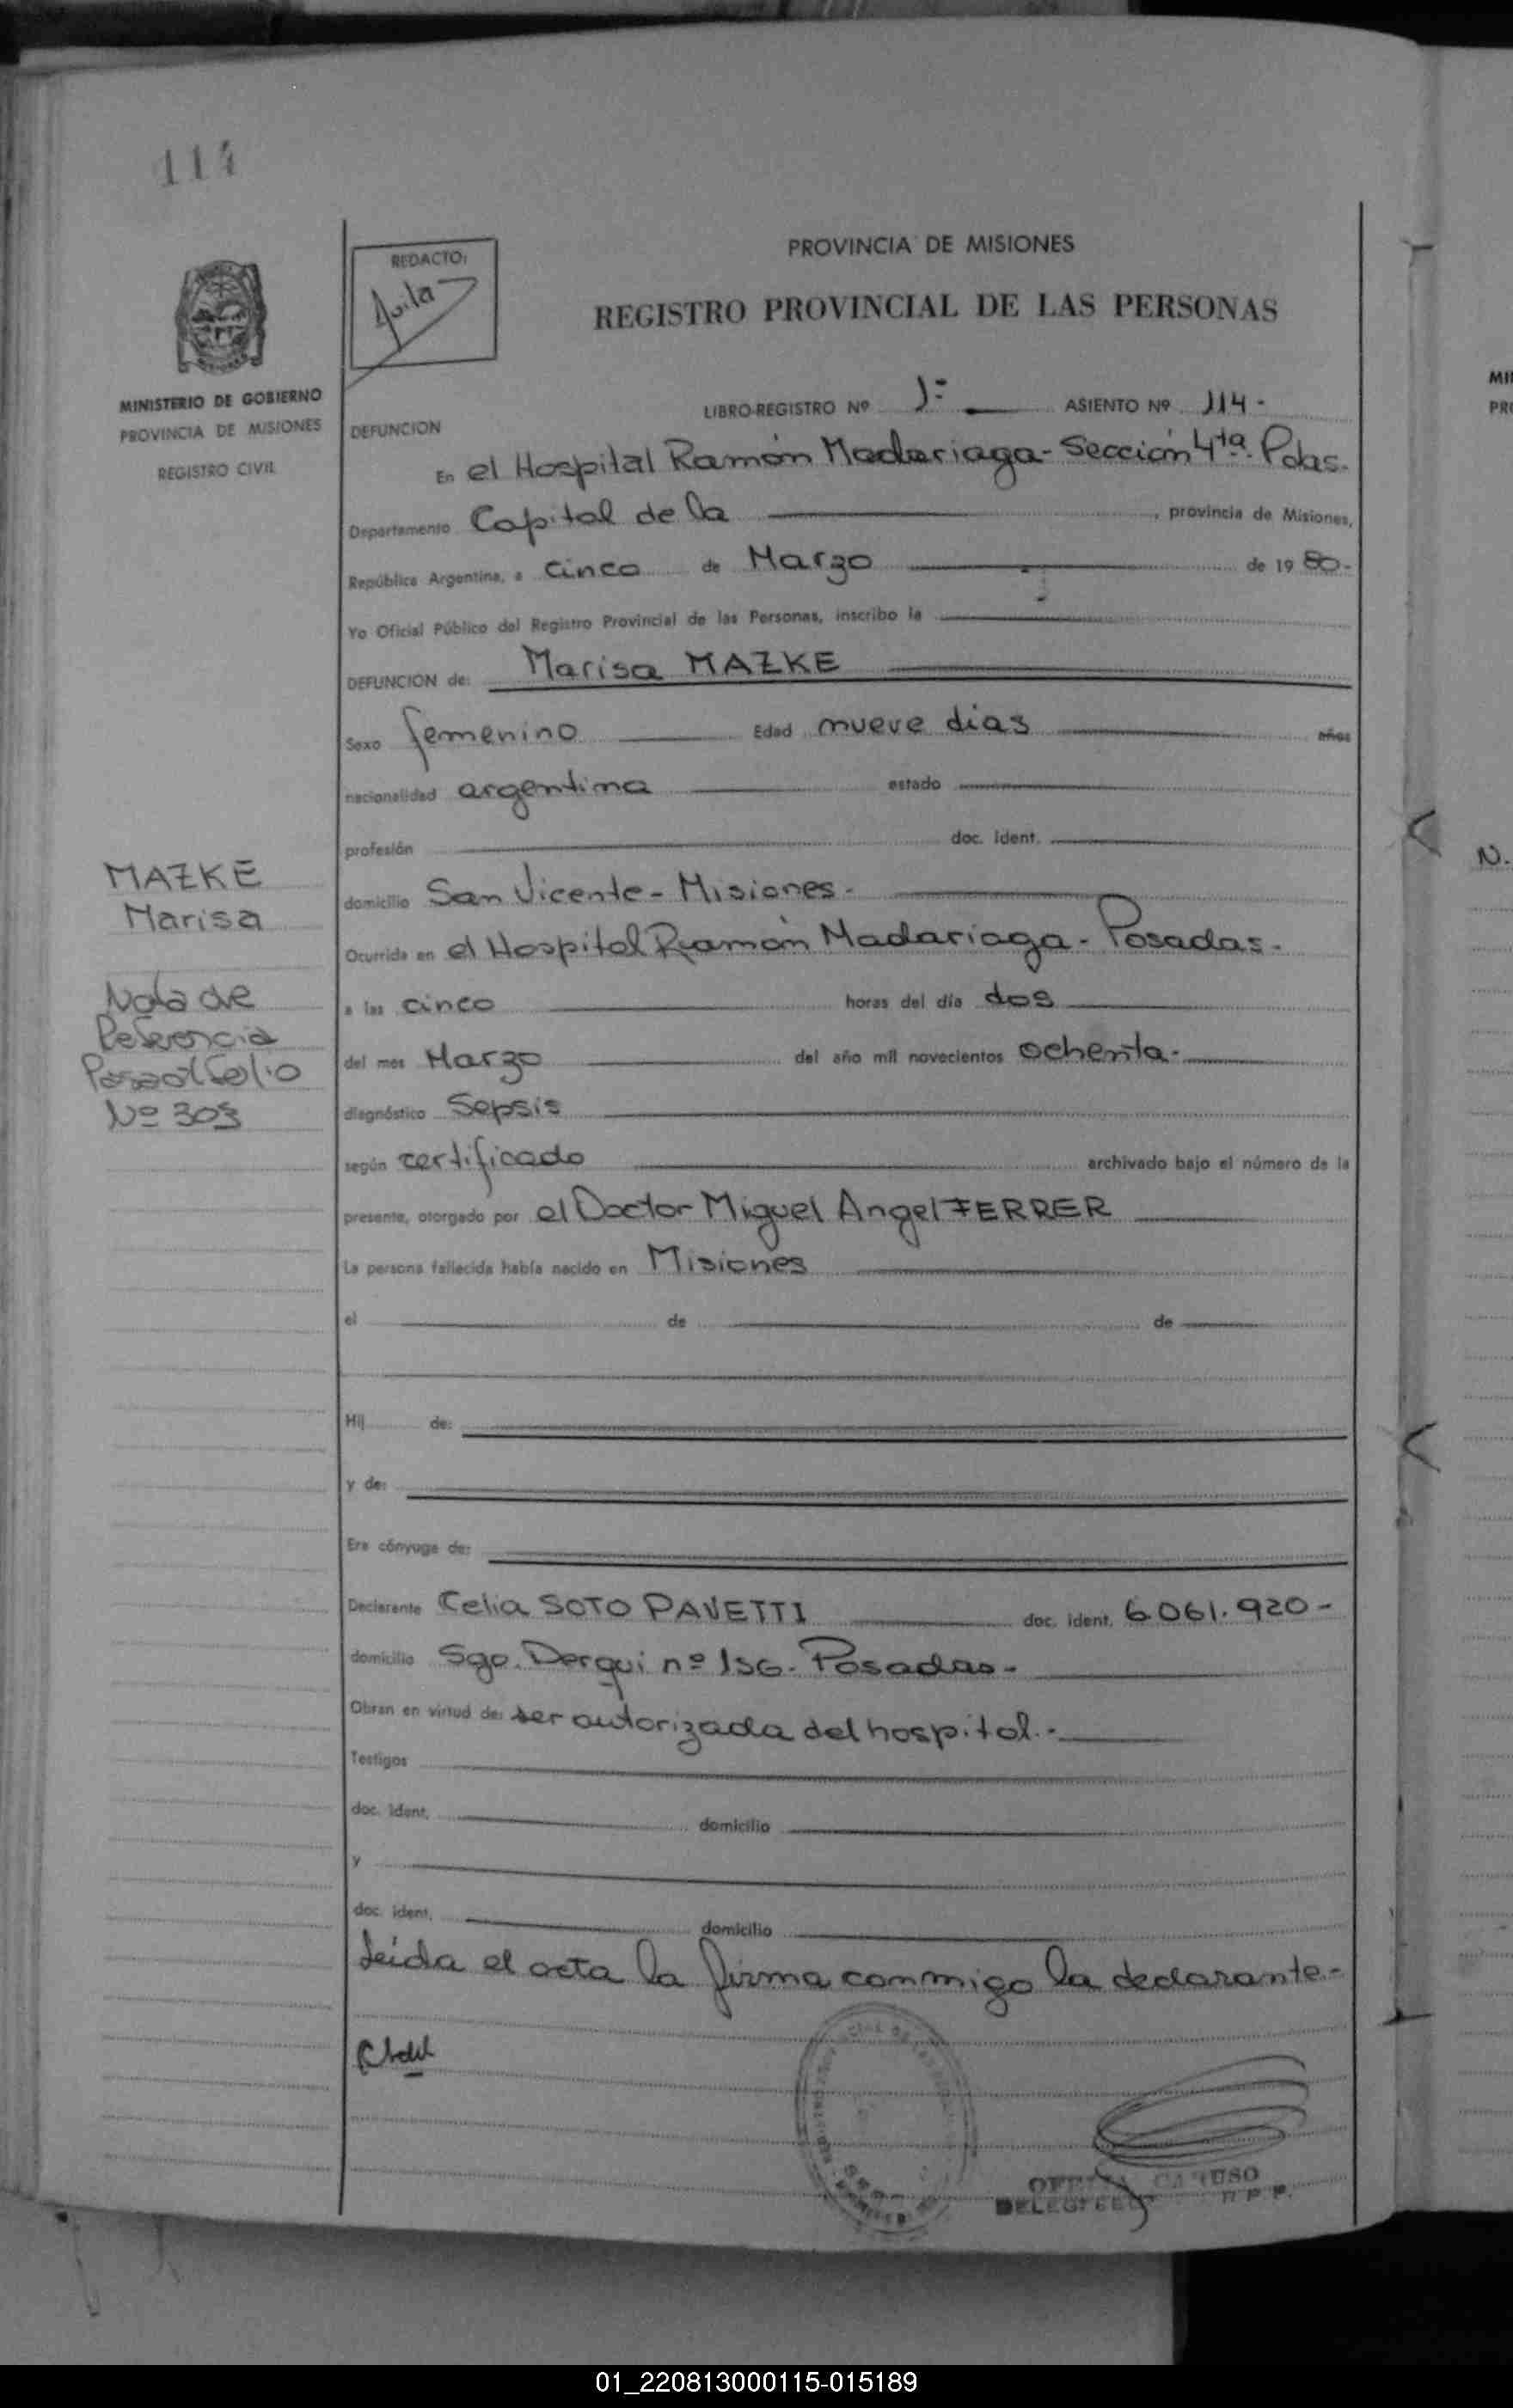 114
REDACTO:
Avila
PROVINCIA DE MISIONES
REGISTRO PROVINCIAL DE LAS PERSONAS
MINISTERIO DE GOBIERNO
PROVINCIA DE MISIONES
REGISTRO CIVIL
LIBRO-REGISTRO Nº 1º ASIENTO Nº 114-
DEFUNCION
En el Hospital Ramón Madariaga - Sección 4ta. Pdas.
Departamento Capital de la, provincia de Misiones,
República Argentina, a cinco de Marzo de 1980-
Yo Oficial Público del Registro Provincial de las Personas, inscribo la
DEFUNCION de: Marisa MAZKE
Sexo femenino Edad nueve días años
nacionalidad argentina estado
profesión doc. ident.
MAZKE
Marisa
domicilio San Vicente - Misiones.
Ocurrida en el Hospital Ramón Madariaga - Posadas.
Nota de
Referencia
Nº 303
a las cinco horas del día dos
del mes Marzo del año mil novecientos ochenta.
diagnóstico Sepsis
según certificado archivado bajo el número de la
presente, otorgado por el Doctor Miguel Angel FERRER
La persona fallecida había nacido en Misiones
el de de
Hij de:
y de:
Era cónyuge de:
Declarante Celia SOTO PAVETTI doc. ident. 6.061.920-
domicilio Sgo. Derqui nº 156 - Posadas -
Obran en virtud de: ser autorizada del hospital.-
Testigos
doc. ident. domicilio
y
doc. ident. domicilio
Leída el acta la firma conmigo la declarante.-
CARUSO
R. P. P.
MI
PR
N.
01_220813000115-015189